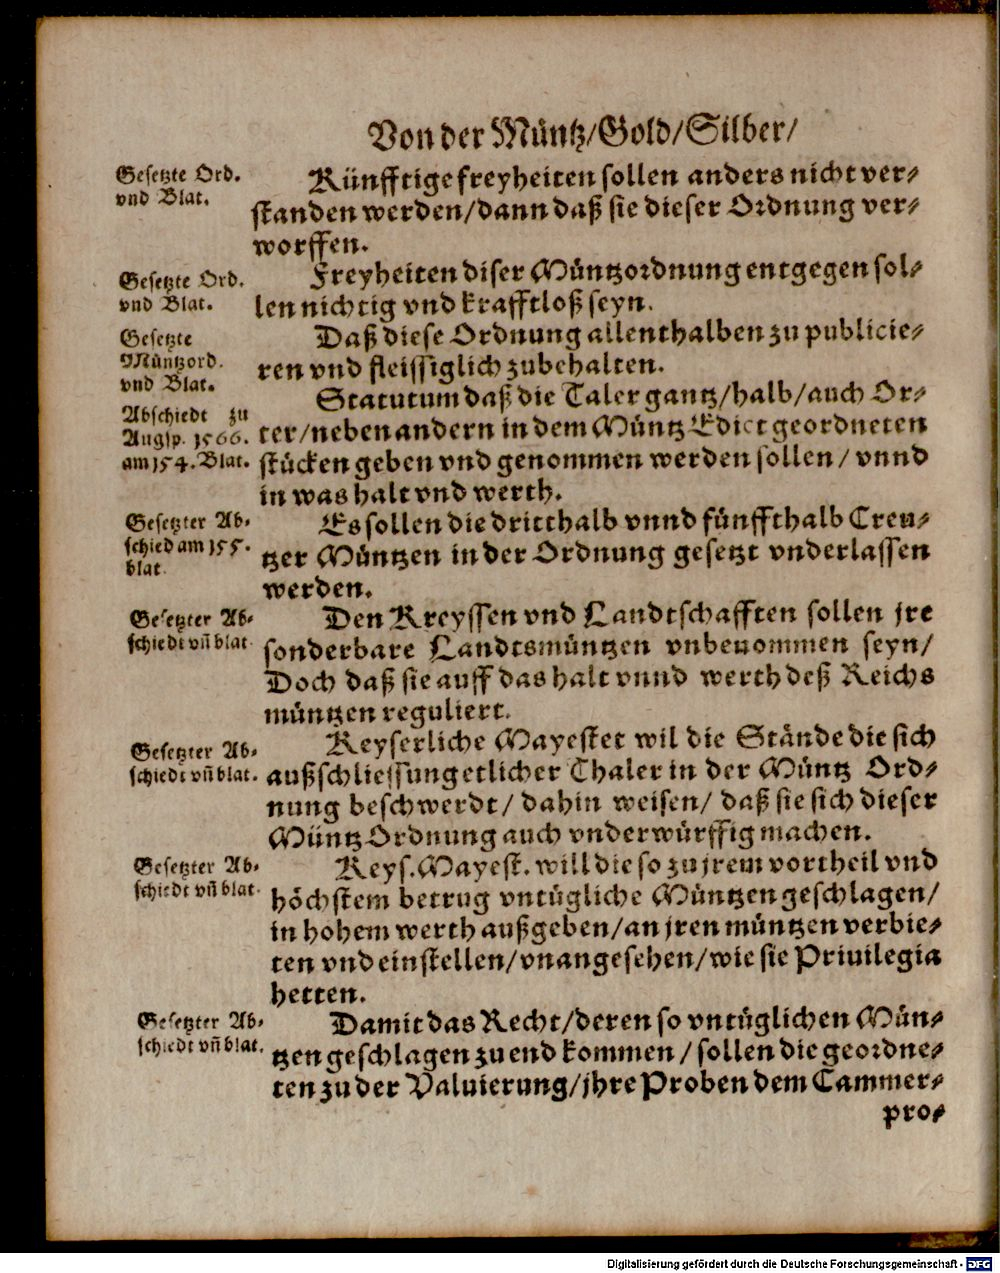 Von der Müntz/Gold/Silber/
Gesetzte Ord.
vnd Blat.
Künfftige freyheiten sollen anders nicht ver-
standen werden/dann daß sie dieser Ordnung ver-
worffen.
Gesetzte Ord.
vnd Blat.
Freyheiten diser Müntzordnung entgegen sol-
len nichtig vnd krafftloß seyn.
Gesetzte
Müntzord.
vnd Blat.
Daß diese Ordnung allenthalben zu publicie-
ren vnd fleissiglich zubehalten.
Abschiedt zu
Augsp. 1566.
am 154. Blat.
Statutum daß die Taler gantz/halb/auch Or-
ter/neben andern in dem Müntz Edict geordneten
stücken geben vnd genommen werden sollen/ vnnd
in was halt vnd werth.
Gesetzter Ab-
schied am 155.
blat.
Es sollen die dritthalb vnnd fünffthalb Creu-
tzer Müntzen in der Ordnung gesetzt vnderlassen
werden.
Gesetzter Ab-
schiedt vñ blat.
Den Kreyssen vnd Landtschafften sollen jre
sonderbare Landtsmüntzen vnbenommen seyn/
Doch daß sie auff das halt vnnd werth deß Reichs
müntzen reguliert.
Gesetzter Ab-
schiedt vñ blat.
Keyserliche Mayestet wil die Stände die sich
außschliessung etlicher Thaler in der Müntz Ord-
nung beschwerdt/ dahin weisen/ daß sie sich dieser
Müntz Ordnung auch vnderwürffig machen.
Gesetzter Ab-
schiedt vñ blat.
Keys. Mayest. will die so zu jrem vortheil vnd
höchstem betrug vntügliche Müntzen geschlagen/
in hohem werth außgeben/an jren müntzen verbie-
ten vnd einstellen/vnangesehen/wie sie Priuilegia
hetten.
Gesetzter Ab-
schiedt vñ blat.
Damit das Recht/deren so vntüglichen Mün-
tzen geschlagen zu end kommen/ sollen die geordne-
ten zu der Valuierung/jhre Proben dem Cammer-
pro-
Digitalisierung gefördert durch die Deutsche Forschungsgemeinschaft - DFG